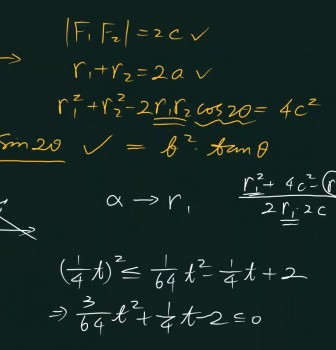 |F₁F₂| = 2c ✓
→ r₁+r₂ = 2a ✓
r₁²+r₂²-2r₁r₂cos2θ = 4c²
sin2θ ✓ = b²·tanθ
α → r₁ (r₁²+4c²-)/(2r₁·2c)
(1/4 t)² ≤ 1/64 t² - 1/4 t + 2
⇒ 3/64 t² + 1/4 t - 2 ≤ 0